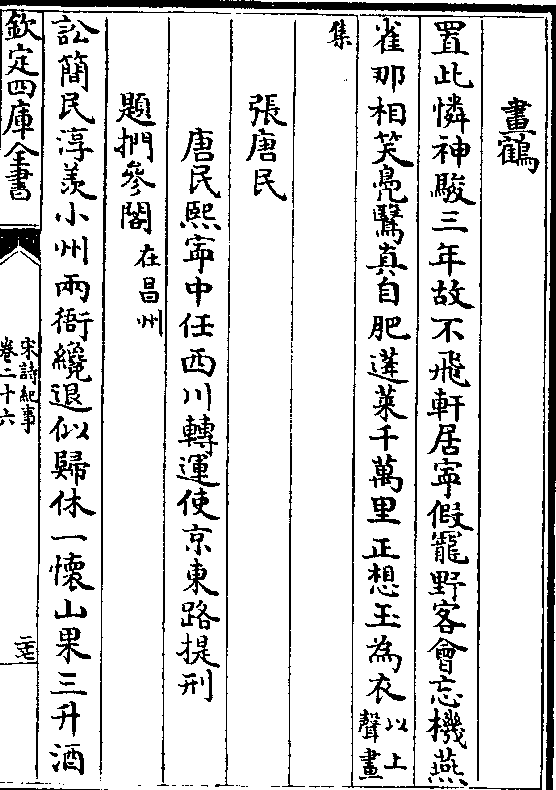 畫鶴
置此憐神駿三年故不飛軒居寜假寵野客會忘機燕
雀那相笑鳧鷖真自肥蓬萊千萬里正想玉為衣以上聲畫
集
張唐民
唐民熙寜中任西川轉運使京東路提刑
題捫參閣在昌州
訟簡民淳羡小州兩衙纔退似歸休一懷山果三升酒
欽定四庫全書
宋詩紀事
卷二十六